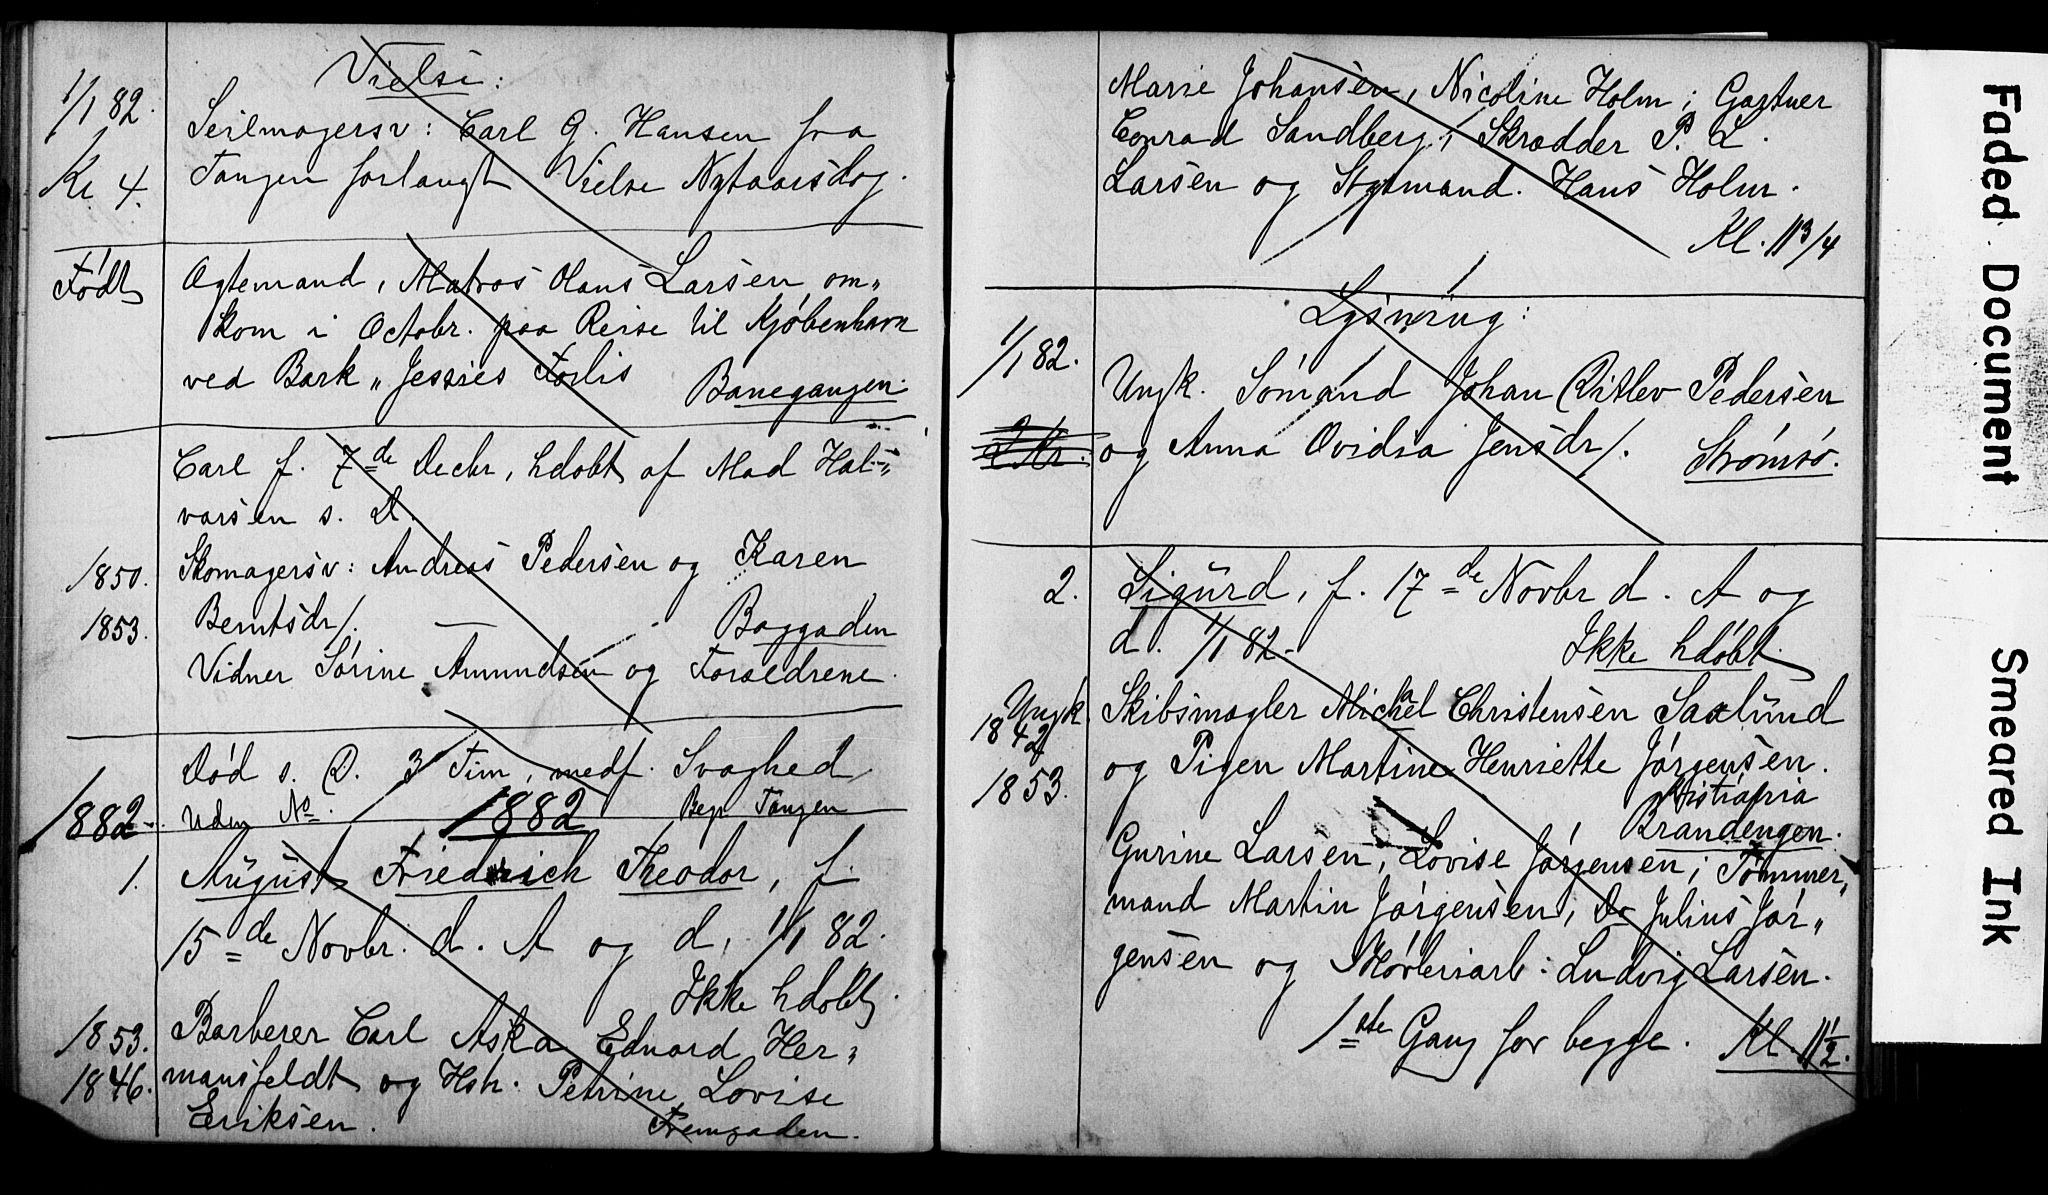 Vielse:
1/1 82.
Seilmagersv: Carl G. Hansen fra
Kr 4.
Tangen forlangt Vielse Nytaarsdag.
Født
Ægtemand, Matros Hans Larsen om„
kom i Octobr. paa Reise til Kjøbenhavn
ved Bark „Jessies Forlis
Banegangen.
Carl f. 7de Decbr, hdøbt af Mad Hal„
vorsen s. D.
1850.
Skomagersv: Andreas Pedersen og Karen
1853.
Berntsdr/.
Baggaden
Vidner Sørine Amundsen og Forældrene.
Død s. D. 3 Tim, medf. Svaghed
uden No. 1882 Begr Tangen
1882
1.
August Friedrich Theodor, f.
15de Novbr. d. A og d. 1/1 82.
Ikke hdøbt.
1853.
Barberer Carl Aska Eduard Her„
1846.
mansfeldt og Hstr. Petrine Lovise
Eriksen.
Fremgaden.
Marie Johansen, Nicoline Holm; Gartner
Conrad Sandberg, Skrædder P. L.
Larsen og Stymand. Hans Holm.
Kl. 11 3/4
Lysning:
1/1 82.
Ungk. Sømand Johan Ditlev Pedersen
2 Kr.
og Anna Ovidia Jensdr/.
Strømsø.
2.
Sigurd, f. 17de Novbr d. A og
d. 1/1 82.
Ikke hdøbt.
Ungk
1842
Skibsmægler Michael Christensen Saxlund
1853.
og Pigen Martine Henriette Jørgensen.
Kristiania
Brandengen.
Gurine Larsen, Lovise Jørgensen; Tømmer„
mand Martin Jørgensen, Do Julius Jør„
gensen og Møbleriarb: Ludvig Larsen.
1ste Gang for begge. Kl. 11 1/2.
Faded Document
Smeared Ink